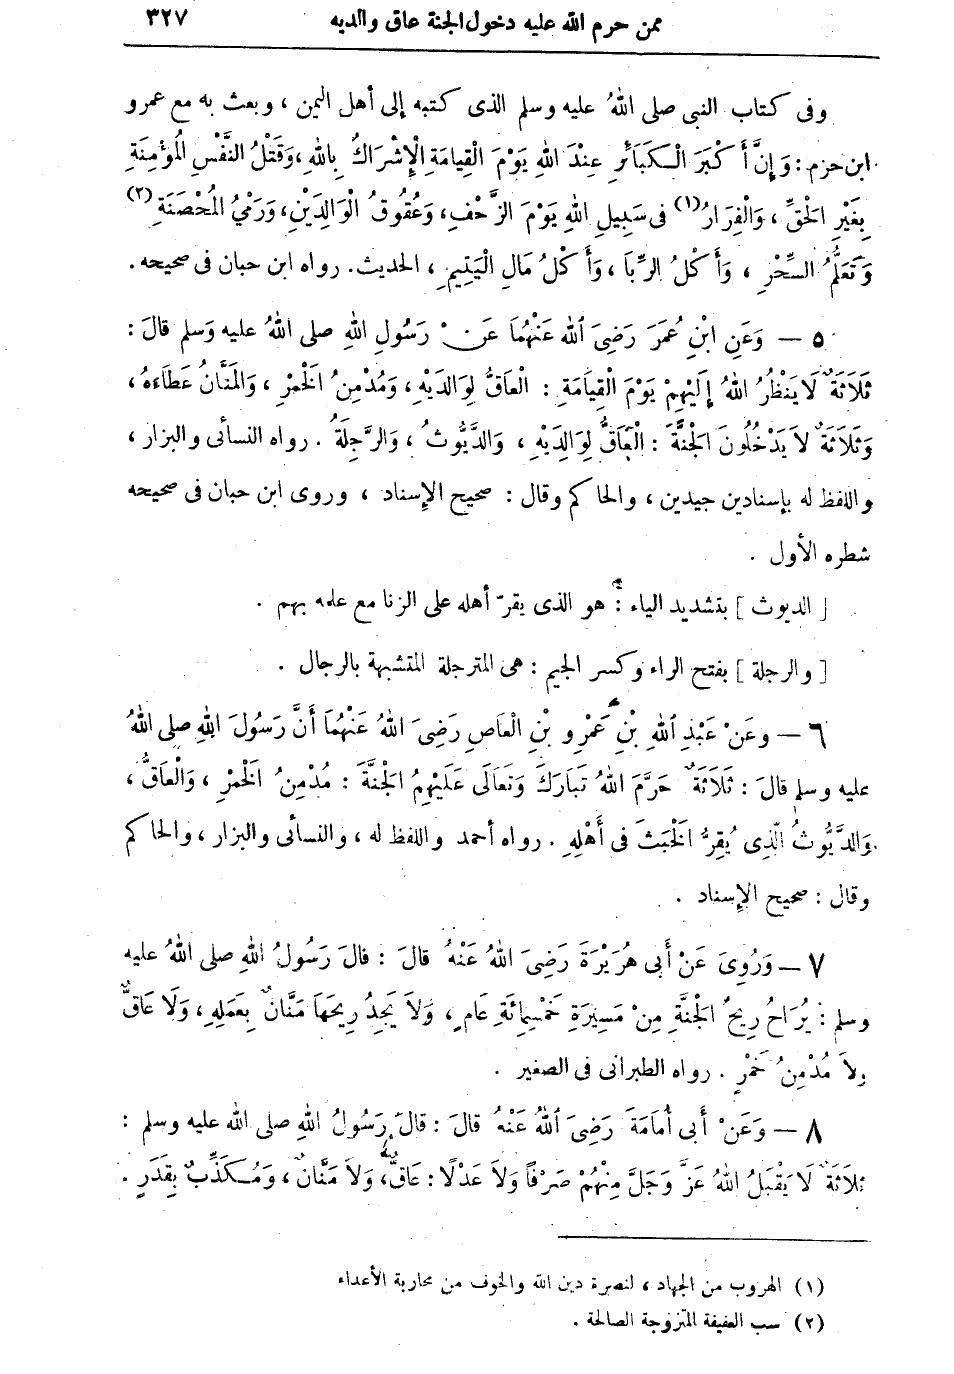 ممن حرم الله عليه دخول الجنة عاق والديه ٣٢٧
وفى كتاب النبى صلى اللهُ عليه وسلم الذى كتبه إلى أهل اليمن ، وبعث به مع عمرو
ابن حزم : وَإِنَّ أَكْبَرَ الْكَبَائِرِ عِنْدَ اللهِ يَوْمَ الْقِيَامَةِ الْإِشْرَاكُ بِاللهِ ، وَقَتْلُ النَّفْسِ الْمُؤْمِنَةِ
بِغَيْرِ الْحَقِّ ، وَالْفِرَارُ (١) فى سَبِيلِ اللهِ يَوْمَ الزَّحْفِ ، وَعُقُوقُ الْوَالِدَيْنِ ، وَرَمْيُ الْمُحْصَنَةِ (٢)
وَتَعَلُّمُ السِّحْرِ ، وَأَكْلُ الرِّبَا ، وَأَكْلُ مَالِ الْيَتِيمِ ، الحديث . رواه ابن حبان فى صحيحه .
٥ — وَعَنِ ابْنِ عُمَرَ رَضِىَ اللهُ عَنْهُمَا عَنْ رَسُولِ اللهِ صلى اللهُ عليه وَسلم قالَ :
ثَلَاثَةٌ لَا يَنْظُرُ اللهُ إِلَيْهِمْ يَوْمَ الْقِيَامَةِ : الْعَاقُّ لِوَالِدَيْهِ ، وَمُدْمِنُ الْخَمْرِ ، وَالْمَنَّانُ عَطَاءَهُ ،
وَثَلَاثَةٌ لَا يَدْخُلُونَ الْجَنَّةَ : الْعَاقُّ لِوَالِدَيْهِ ، وَالدَّيُّوثُ ، وَالرَّجِلَةُ . رواه النسائى والبزار ،
واللفظ له بإسنادين جيدين ، والحاكم وقال : صحيح الإسناد ، وروى ابن حبان فى صحيحه
شطره الأول .
[ الديوث ] بتشديد الياء : هو الذى يقرّ أهله على الزنا مع علمه بهم .
[ والرجلة ] بفتح الراء وكسر الجيم : هى المترجلة المتشبهة بالرجال .
٦ — وعَنْ عَبْدِ اللهِ بْنِ عَمْرِو بْنِ الْعَاصِ رَضِىَ اللهُ عَنْهُمَا أَنَّ رَسُولَ اللهِ صلى اللهُ
عليه وسلم قالَ : ثَلَاثَةٌ حَرَّمَ اللهُ تَبَارَكَ وَتَعَالَى عَلَيْهِمُ الْجَنَّةَ : مُدْمِنُ الْخَمْرِ ، وَالْعَاقُّ ،
وَالدَّيُّوثُ الَّذِى يُقِرُّ الْخَبَثَ فى أَهْلِهِ . رواه أحمد واللفظ له ، والنسائى والبزار ، والحاكم
وقال : صحيح الإسناد .
٧ — وَرُوِىَ عَنْ أَبى هُرَيْرَةَ رَضِىَ اللهُ عَنْهُ قالَ : قالَ رَسُولُ اللهِ صلى اللهُ عليه
وسلم : يُرَاحُ رِيحُ الْجَنَّةِ مِنْ مَسِيرَةِ خَمْسِمِائَةِ عَامٍ ، وَلَا يَجِدُ رِيحَهَا مَنَّانٌ بِعَمَلِهِ ، وَلَا عَاقٌّ
ولَا مُدْمِنُ خَمْرٍ . رواه الطبرانى فى الصغير .
٨ — وَعَنْ أَبى أُمَامَةَ رَضِىَ اللهُ عَنْهُ قالَ : قالَ رَسُولُ اللهِ صلى الله عليه وسلم :
ثلَاثَةٌ لَا يَقْبَلُ اللهُ عَزَّ وَجَلَّ مِنْهُمْ صَرْفًا وَلَا عَدْلًا : عَاقٌّ ، وَلَا مَنَّانٌ ، وَمُكَذِّبٌ بِقَدَرٍ .
(١) الهروب من الجهاد ، لنصرة دين الله والخوف من محاربة الأعداء
(٢) سب العفيفة المتزوجة الصالحة .